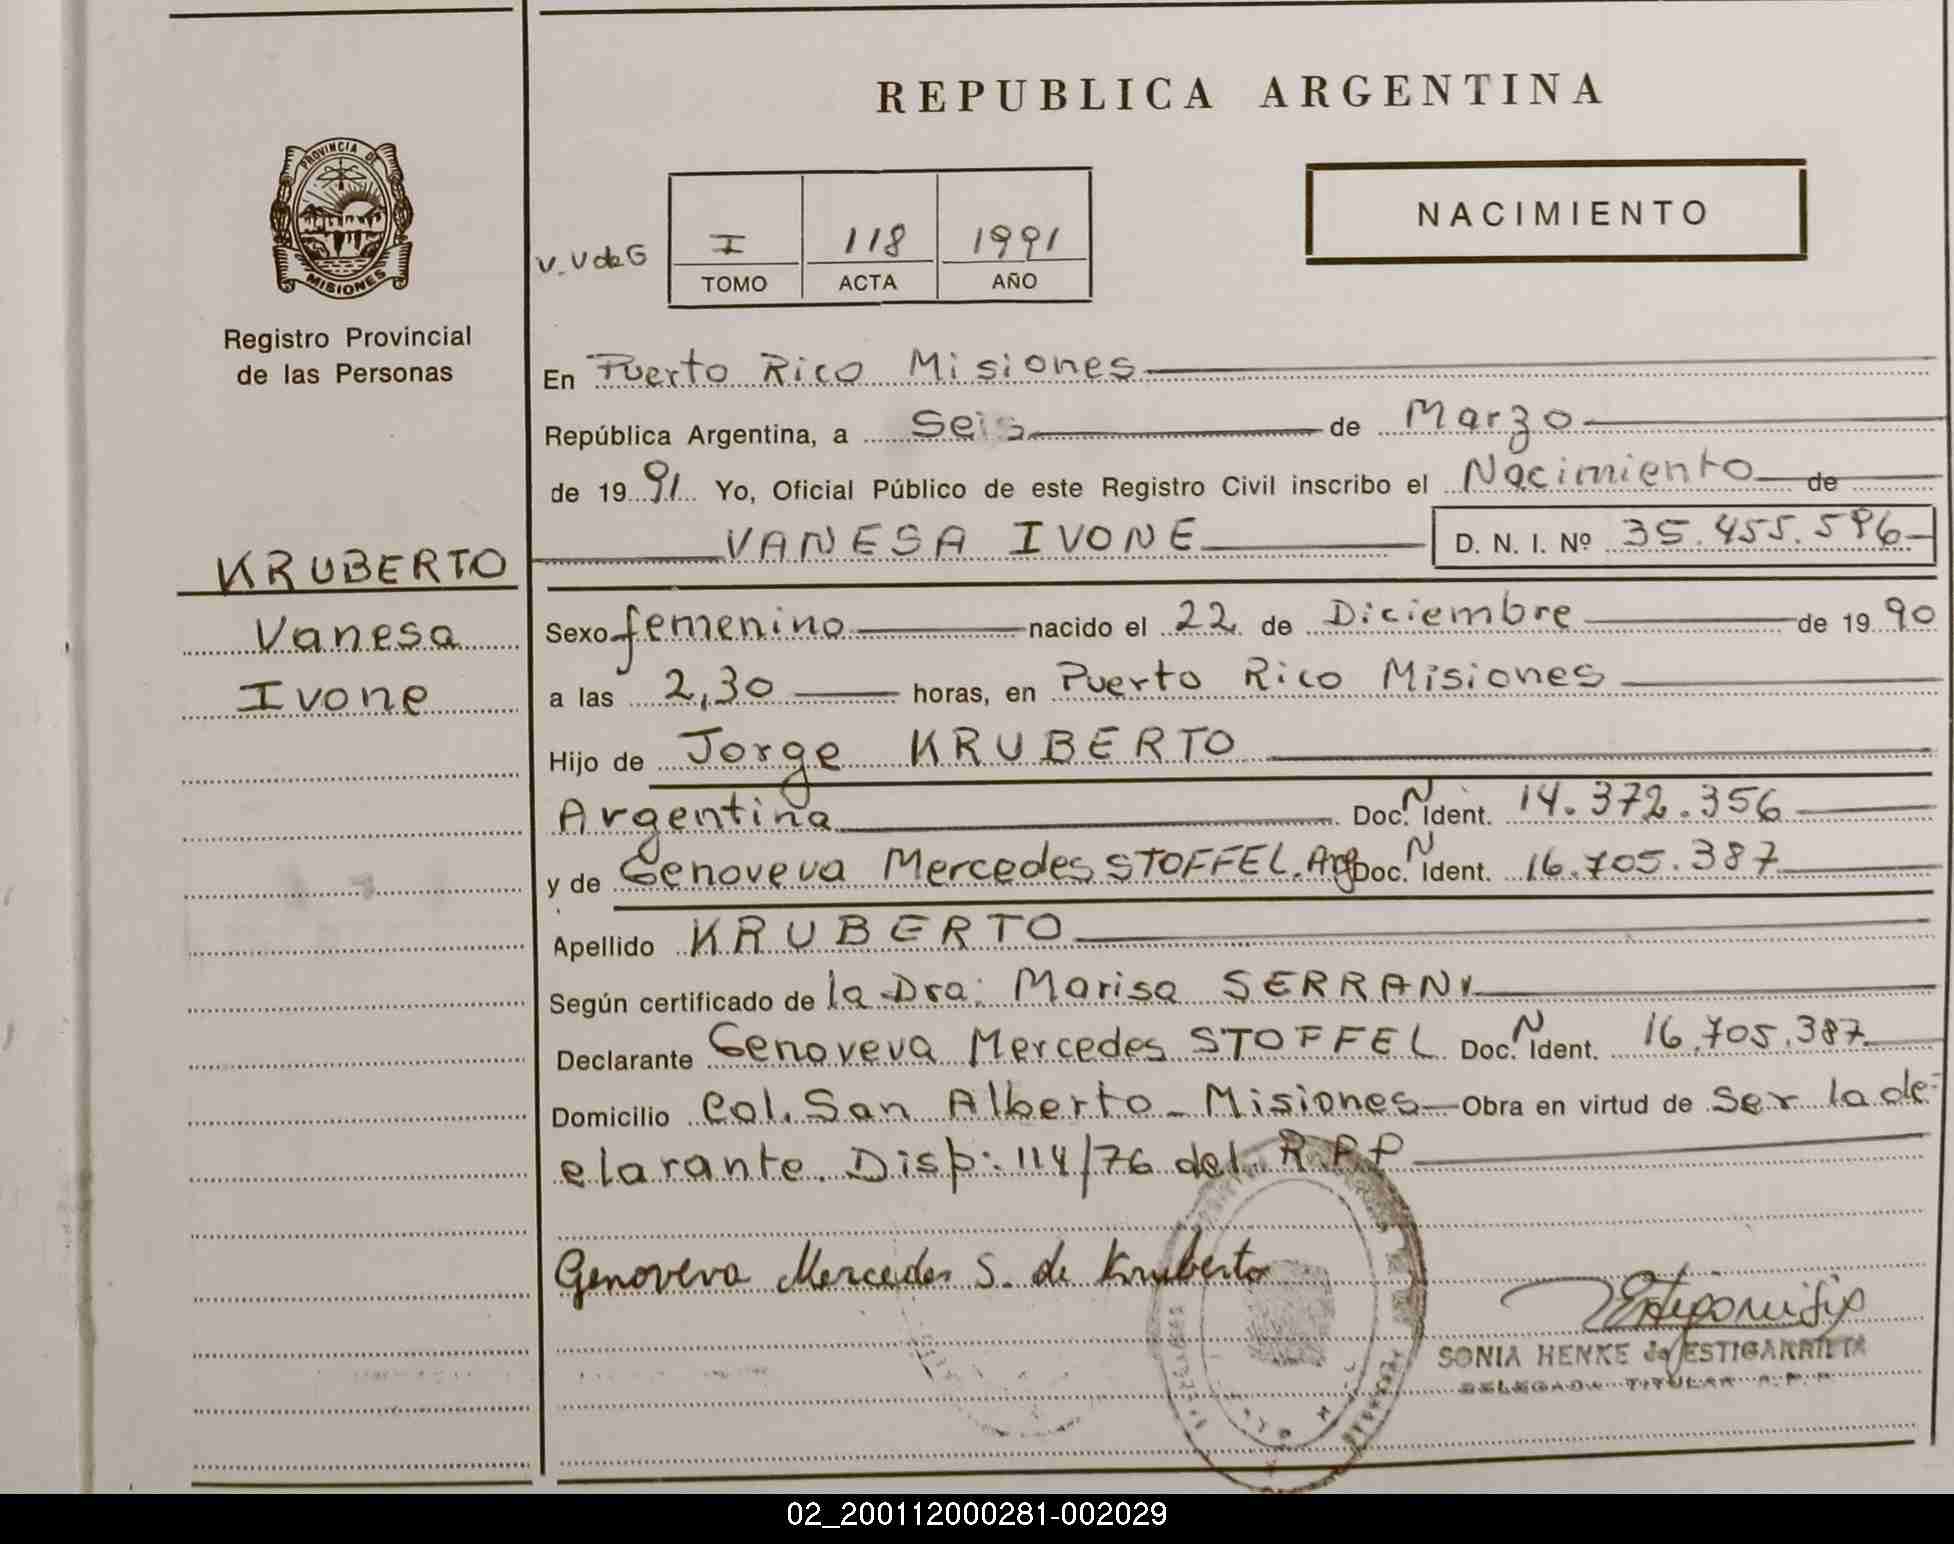 REPUBLICA ARGENTINA
PROVINCIA DE
MISIONES
Registro Provincial
de las Personas
NACIMIENTO
V. V de G
I 118 1991
TOMO ACTA AÑO
En Puerto Rico Misiones
República Argentina, a Seis de Marzo
de 1991 Yo, Oficial Público de este Registro Civil inscribo el Nacimiento de
VANESA IVONE D. N. I. Nº 35.455.596
KRUBERTO
Vanesa
Ivone
Sexo femenino nacido el 22 de Diciembre de 1990
a las 2,30 horas, en Puerto Rico Misiones
Hijo de Jorge KRUBERTO
Argentina Doc. N Ident. 14.372.356
y de Genoveva Mercedes STOFFEL. Arg Doc. N Ident. 16.705.387
Apellido KRUBERTO
Según certificado de la Dra: Marisa SERRANI
Declarante Genoveva Mercedes STOFFEL Doc. N Ident. 16.705.387
Domicilio Col. San Alberto - Misiones Obra en virtud de Ser la de-
clarante. Disp: 114/76 del R.P.P
Genoveva Mercedes S. de Kruberto
SONIA HENKE de ESTIGARRIBIA
DELEGADA TITULAR R.P.P.
02_200112000281-002029